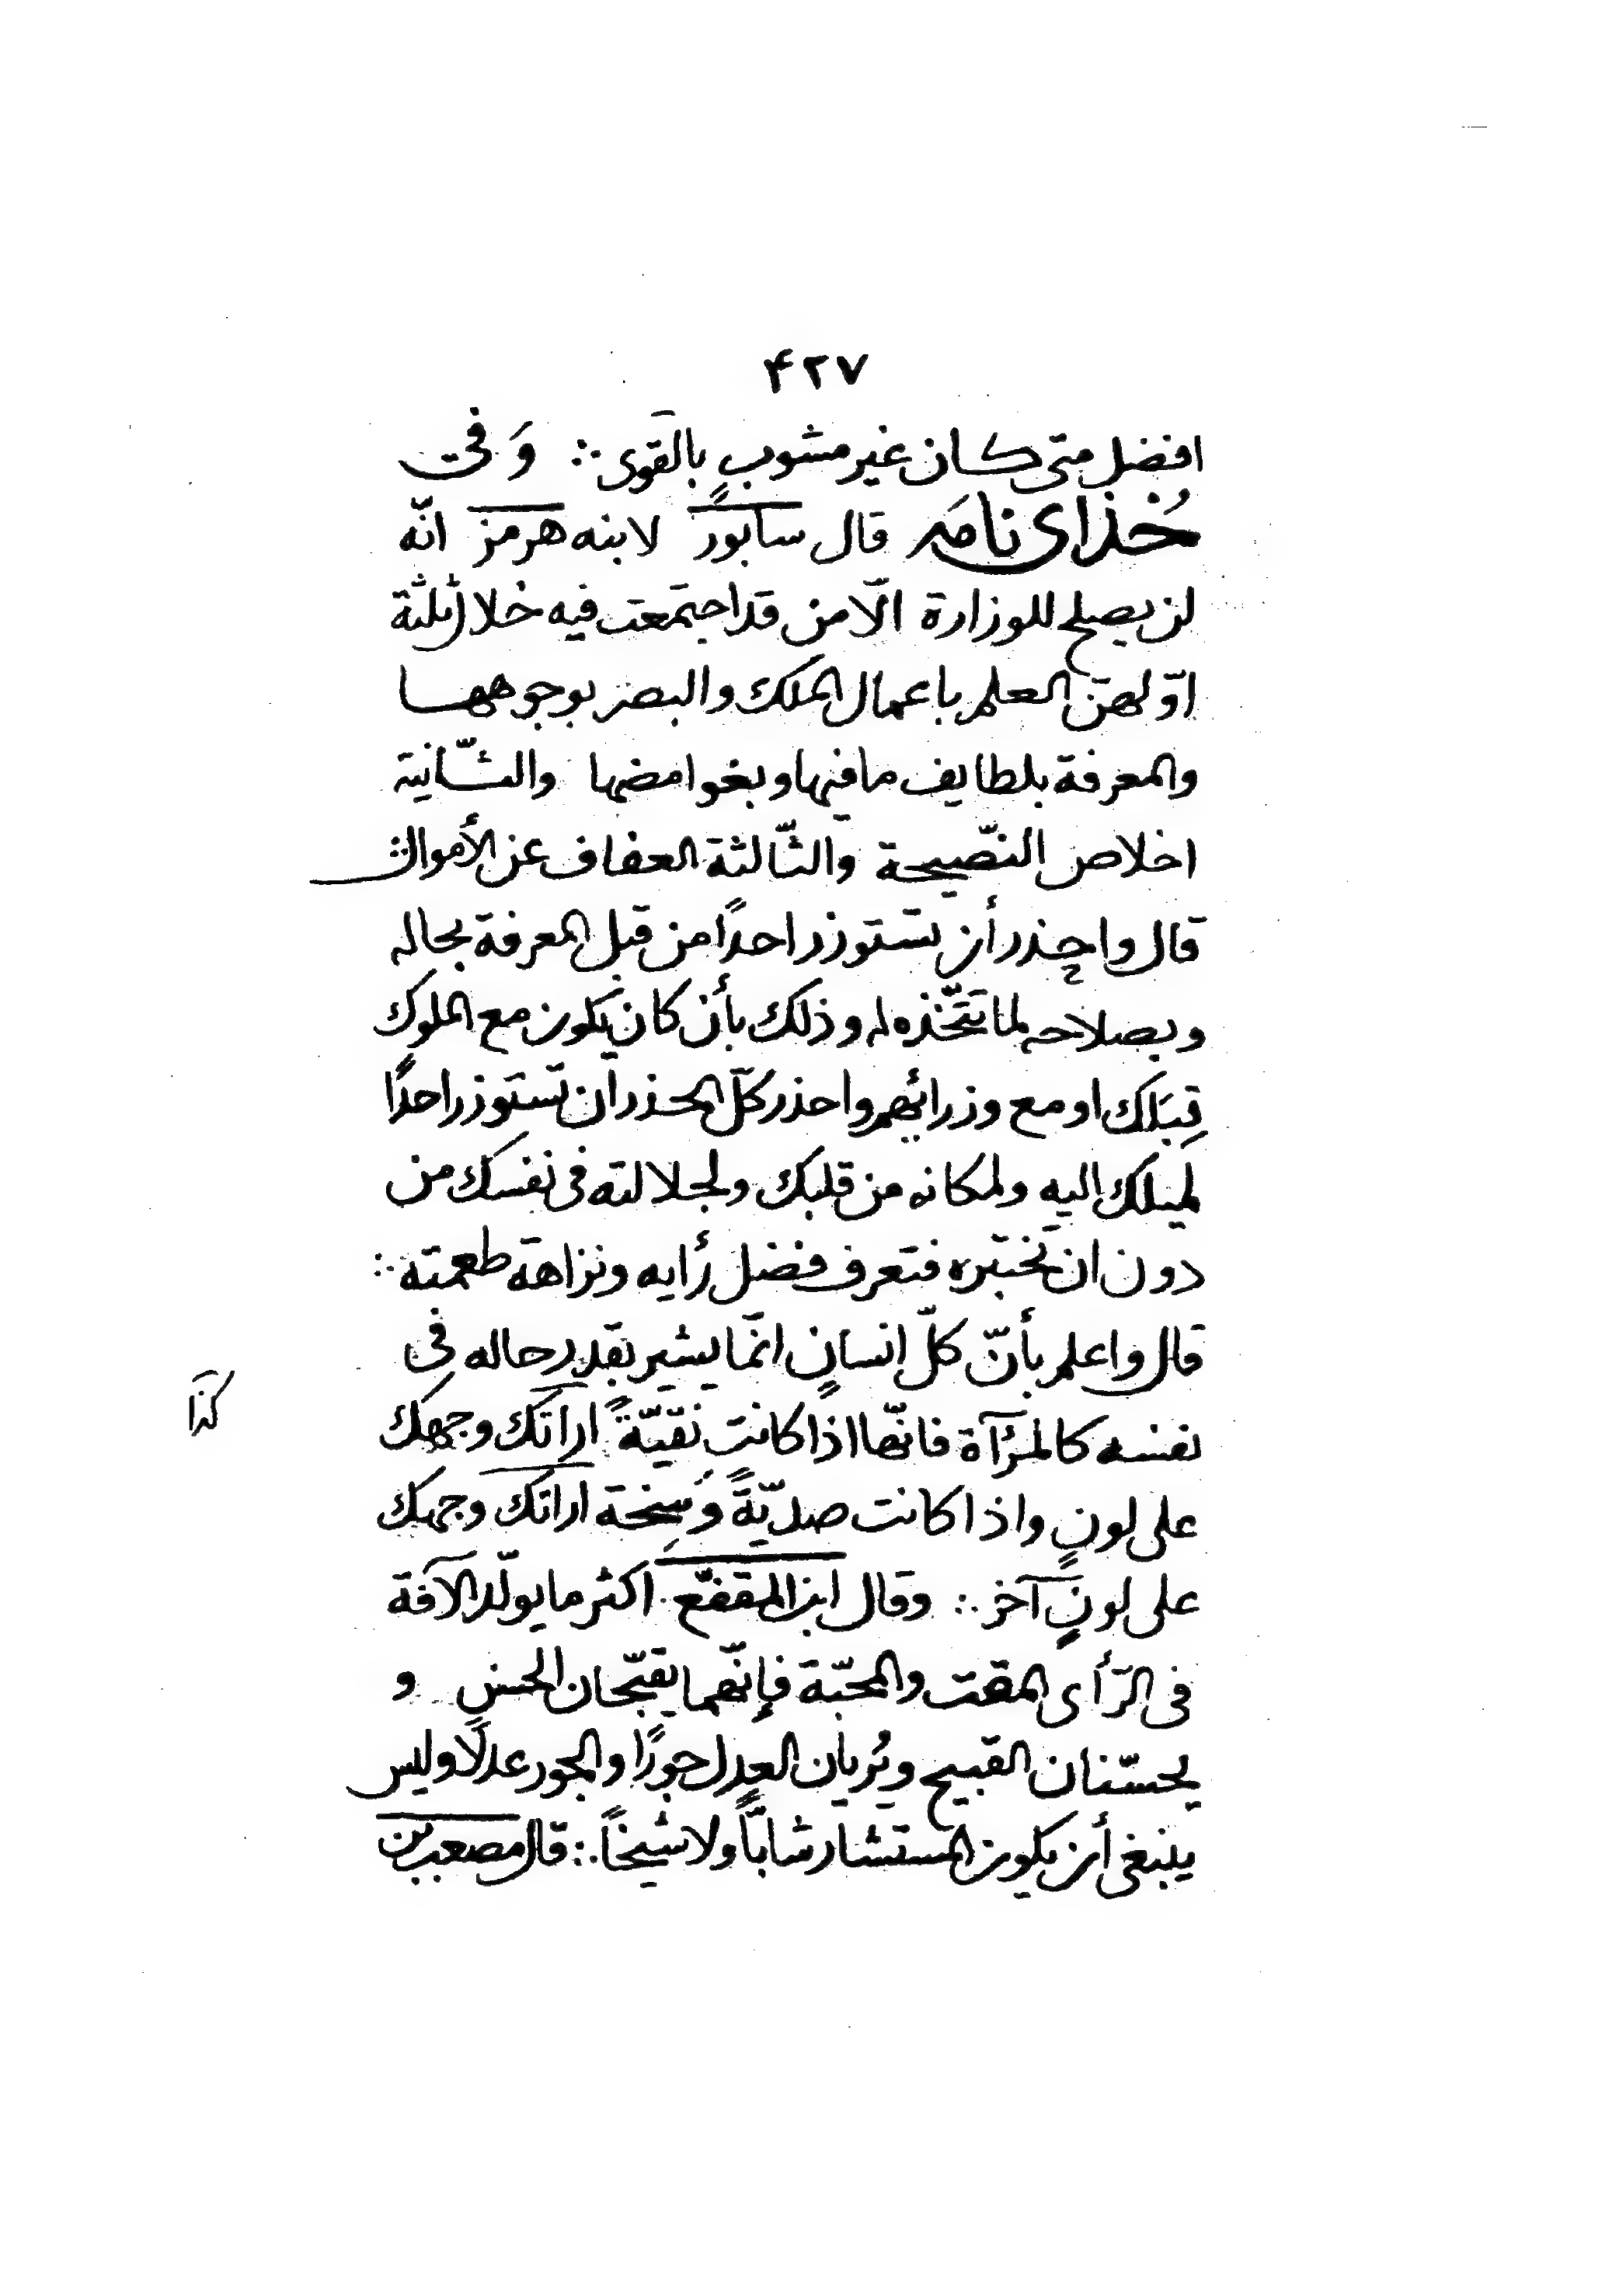 ۴۲۷
افضل متى كان غير مشوبٍ بالقوى ∴ وَ فى
خُذاى نامَه قال سابور لابنه هرمز انّه
لن يصلح للوزارة الّا من قد اجتمعت فيه خلال ثلثة
اوّلهنّ العلم باعمال الملك والبصر بوجوهها
والمعرفة بلطايف ما فيها وبغوامضها والثّانية
اخلاص النّصيحة والثّالثة العفاف عن الأموال ∴
قال واحذر أن تستوزر احدًا من قبل المعرفة بحاله
وبصلاحه لما تتّخذه له وذلك بأن كان يكون مع الملوك
قِبَلك او مع وزرائهم واحذر كلّ الحذر ان تستوزر احدًا
لميلك إليه ولمكانه من قلبك ولجلالته فى نفسك من
دون ان تختبره فتعرف فضل رأيه ونزاهة طعمته ∴
قال واعلم بأنّ كلّ إنسانٍ انّما يشير بقدر حاله فى
نفسه كالمرْآة فانّها اذا كانت نقيّةً اراتك وجهك
كذا
على لونٍ واذا كانت صديّةً وَسِخة اراتك وجهك
على لونٍ آخر ∴ وقال ابن المقفّع اكثر ما يولّد الآفة
فى الرّأى المقت والمحبّة فإنّهما يقبّحان الحسن و
يحسّنان القبيح ويُريان العدل جورًا والجور عدلًا وليس
ينبغى أن يكون المستشار شابّاً ولا شيخاً ∴ قال مصعب بن